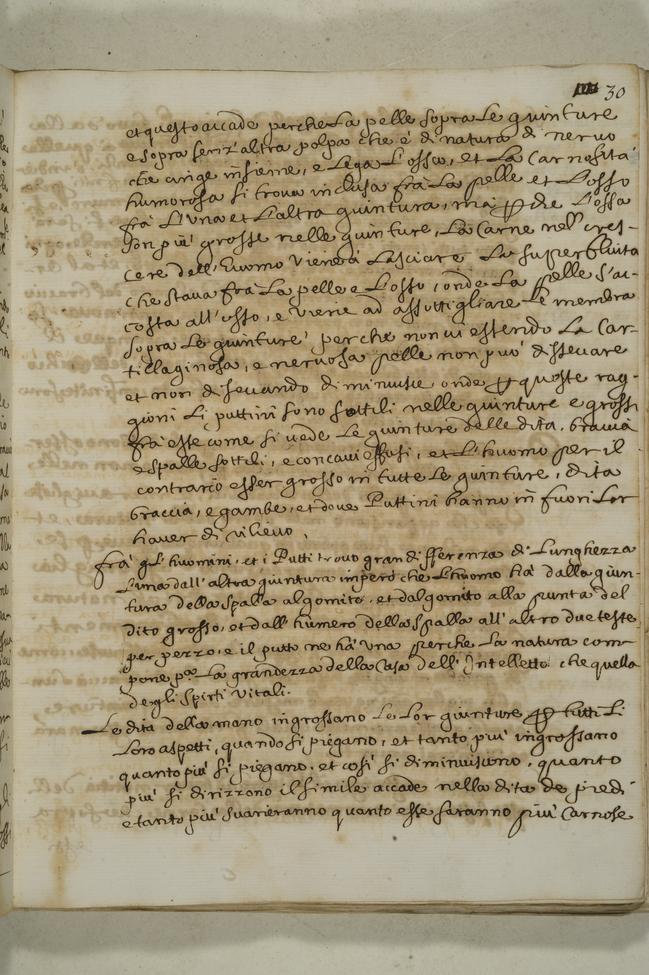 30
et questo accade perche La pelle sopra Le giunture
e sopra senz'altra polpa che è di natura di nervo
che cinge insieme, e Lega L'ossa, et La Carnosità
humorosa si trova inclusa frà La pelle et L'osso
frà L'una et L'altra giuntura, mà che L'ossa
son più grosse nelle giunture, La Carne nel cres-
cere dell'huomo viene à Lasciare La superfluità
che stava frà La pelle e L'osso, onde La pelle s'ac-
costa all'osso, e viene ad assottigliare Le membra
sopra Le giunture perche non vi essendo La Car-
tillaginosa, e nervosa pelle non può disseccare
et non diseccando diminuisce onde queste rag-
gioni Li puttini sono sottili nelle giunture e grossi
frà esse come si vede Le giunture delle dita, braccia
e spalle sottili, e concavi et L'huomo per il
contrario esser grosso in tutte Le giunture, dita
braccia, e gambe, et dove Puttini hanno in fuori Lor
haver di rilievo.
frà gl'huomini, et i Putti trovo gran differenza di Lunghezza
L'una dall'altra giuntura imperò che L'huomo hà dalla giun-
tura della spalla al gomito, et dal gomito alla punta del
dito grosso, et dall'humero della spalla all'altro due teste
per pezzo, e il putto ne hà una perche La natura com-
pone La grandezza della Casa dell'Intelletto che quella
degli spirti vitali.
Le dita della mano ingrossano Le Lor giunture tutti Li
Loro aspetti, quando si piegano, et tanto più ingrossano
quanto più si piegano, et così si diminuiscono, quanto
più si dirizzono il simile accade nella dita de piedi
e tanto più svarieranno quanto esse saranno più Carnose